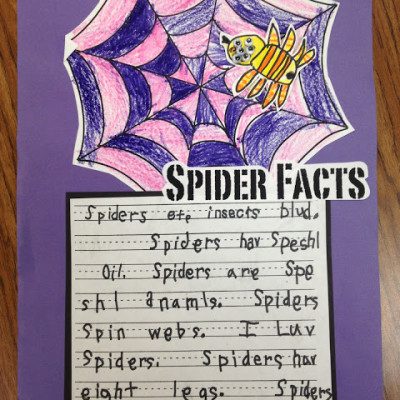 SPIDER FACTS
Spiders ete insects blud.
Spiders hav Speshl
Oil. Spiders are Spe
shl anamls. Spiders
Spin webs. I Luv
Spiders. Spiders hav
eight legs. Spiders